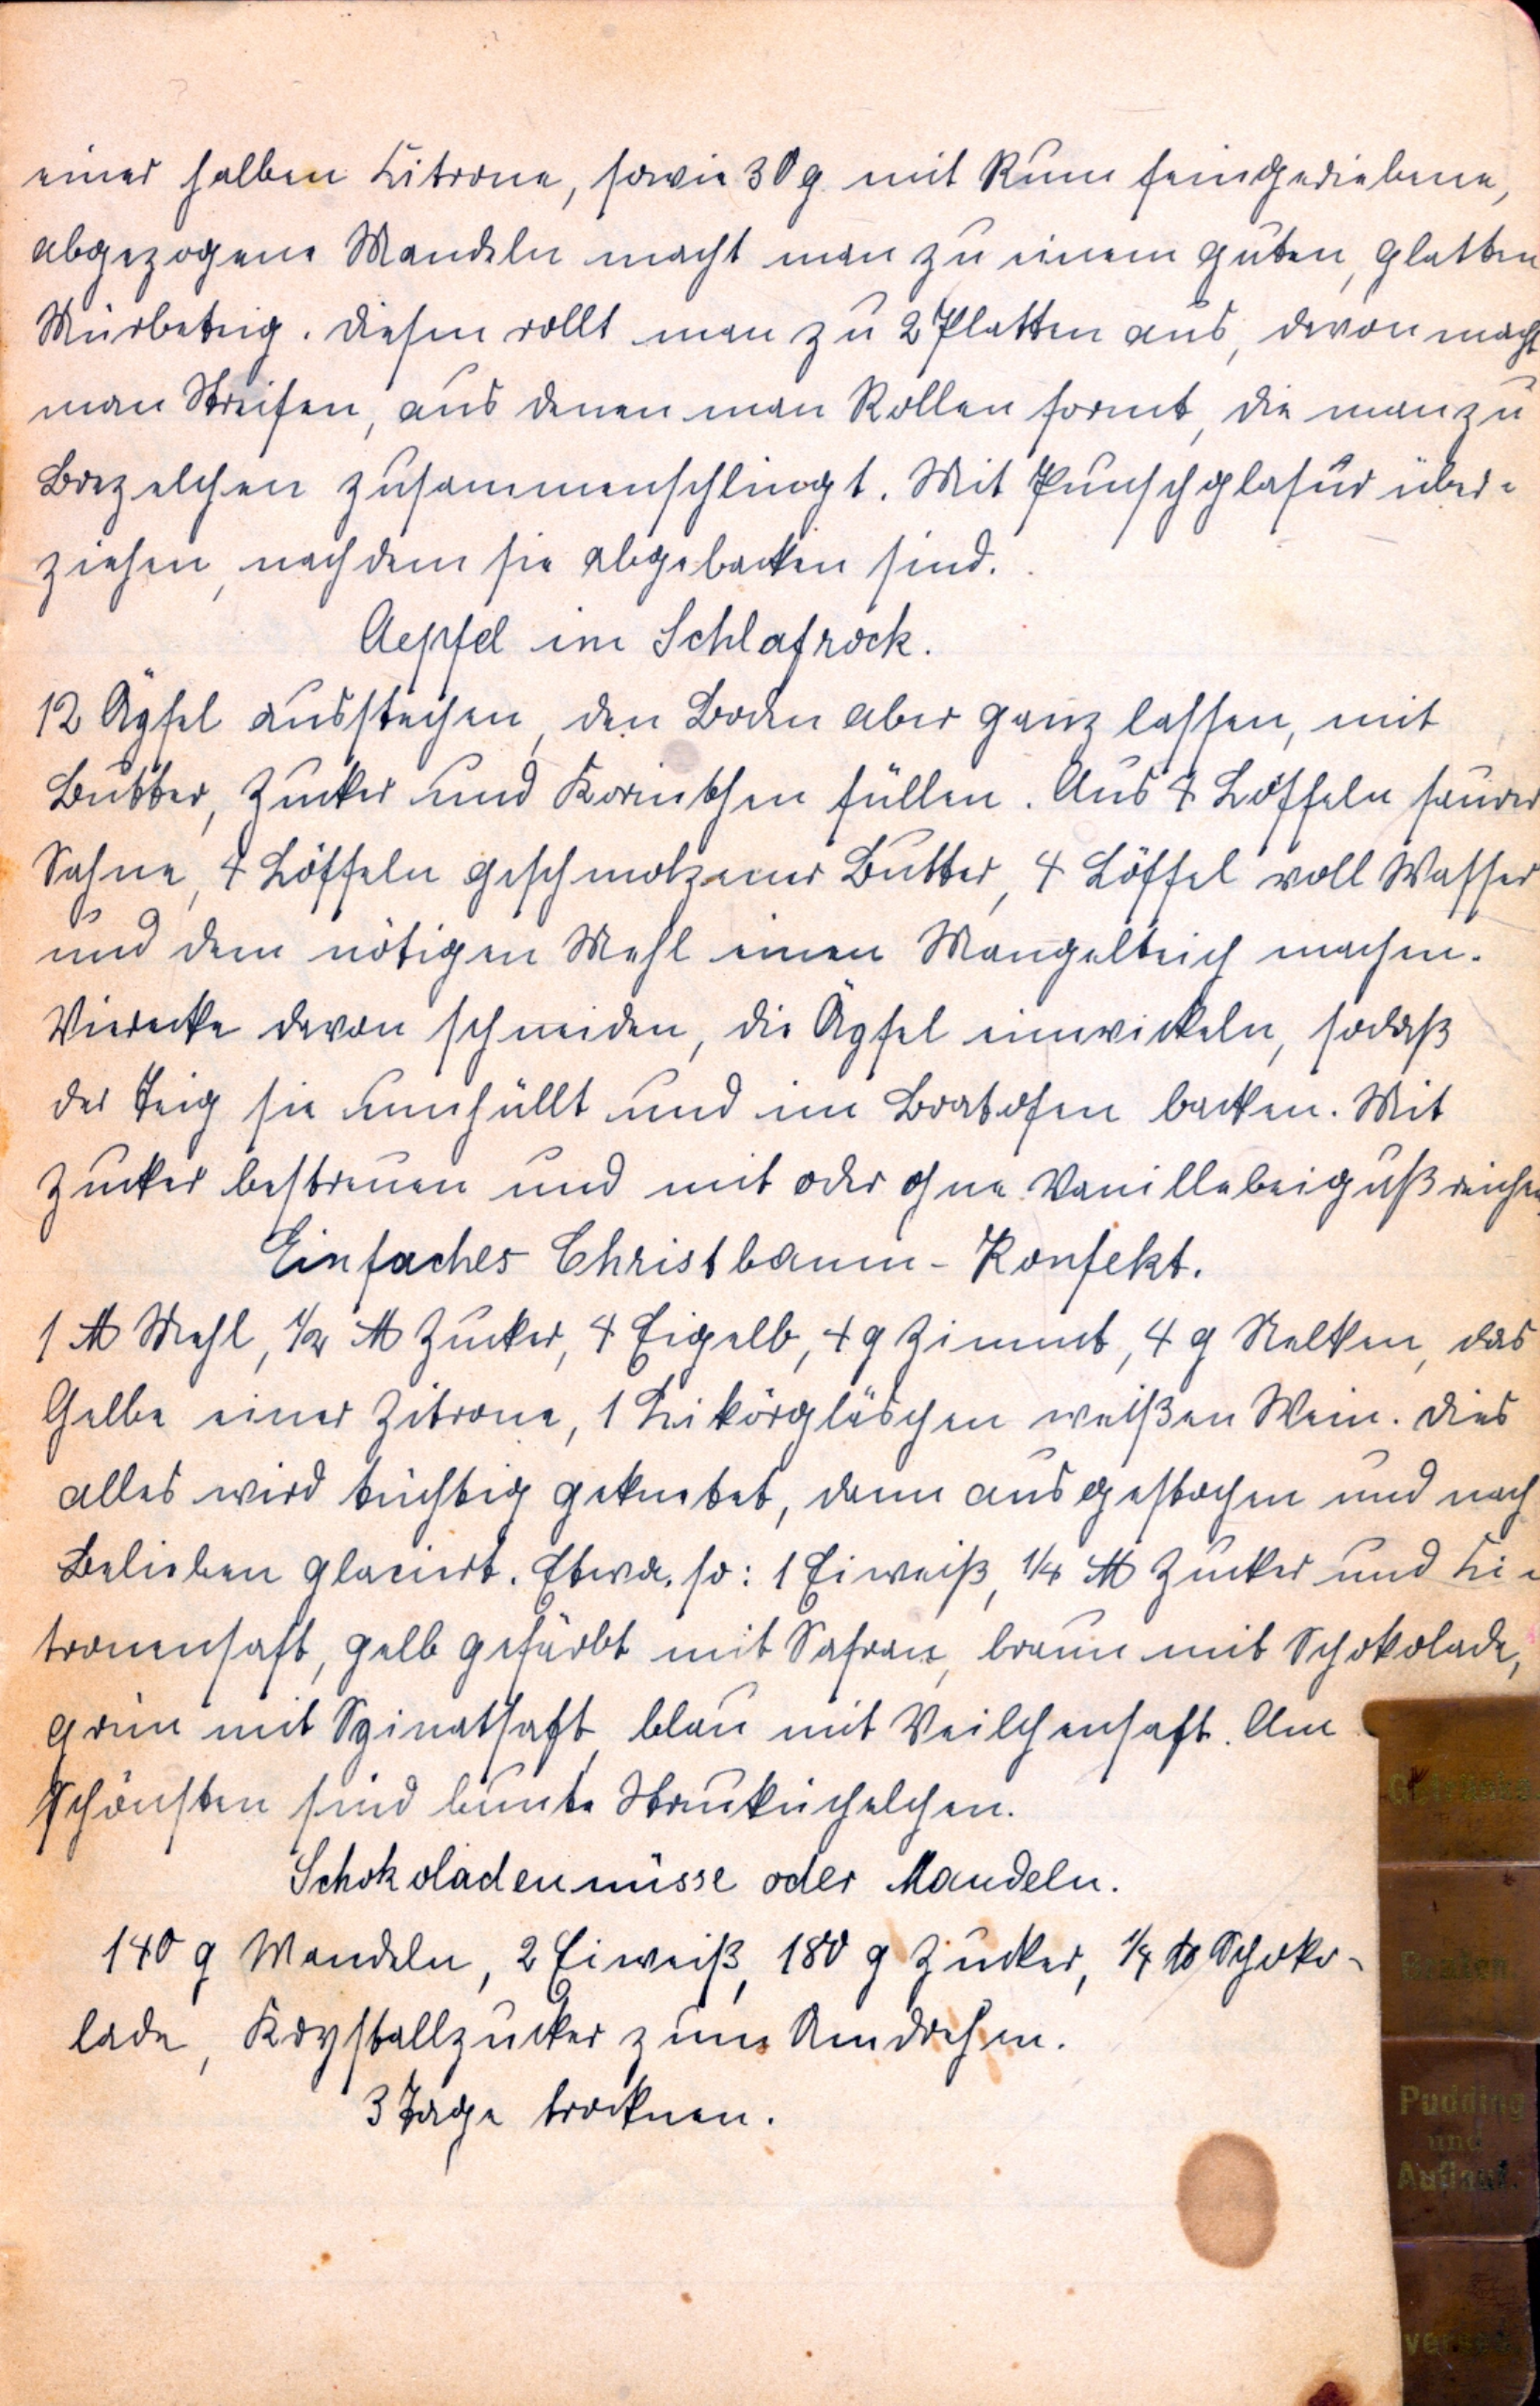 einer halben Zitrone, sowie 30 g mit Rum feingeriebene,
abgezogene Mandeln macht man zu einem guten, glatten
Mürbeteig. Diesen rollt man zu 2 Platten aus, davon macht
man Streifen, aus denen man Rollen formt, die man zu
Brezelchen zusammenschlingt. Mit Punschglasur über-
ziehen, nachdem sie abgebacken sind.
Aepfel im Schlafrock.
12 Äpfel ausstechen, den Boden aber ganz lassen, mit
Butter, Zucker und Korinthen füllen. Aus 4 Löffeln saurer
Sahne, 4 Löffeln geschmolzener Butter, 4 Löffel voll Wasser
und dem nötigen Mehl einen Mangelteich machen.
Vierecke davon schneiden, die Äpfel einwickeln, sodaß
der Teig sie umhüllt und im Bratofen backen. Mit
Zucker bestreuen und mit oder ohne Vanillebeiguß reichen
Einfaches Christbaum-Konfekt.
1 ℔ Mehl, 1/2 ℔ Zucker, 4 Eigelb, 4 g Zimmt, 4 g Nelken, das
Gelbe einer Zitrone, 1 Likörgläschen weißen Wein. Dies
alles wird tüchtig geknetet, dann ausgestochen und nach
Belieben glaciert. Etwa so: 1 Eiweiß, 1/4 ℔ Zucker und Zi-
tronensaft, gelb gefärbt mit Safran, braun mit Schokolade,
grün mit Spinatsaft, blau mit Veilchensaft. Am
schönsten sind bunte Streuküchelchen.
Schokoladennüsse oder Mandeln.
140 g Mandeln, 2 Eiweiß, 180 g Zucker, 1/4 ℔ Schoko-
lade, Krystallzucker zum Umdrehen.
3 Tage trocknen.
Braten
Pudding
und
Auflauf.